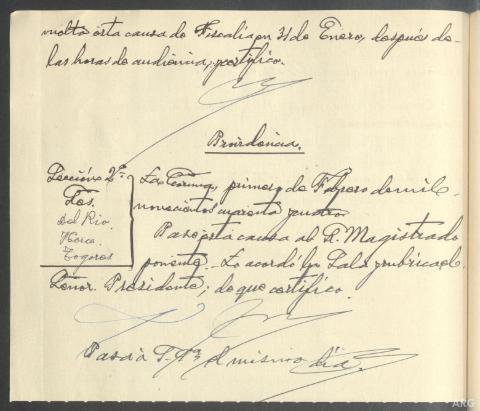 vuelto esta causa de Fiscalía en 31 de Enero, después de
las horas de audiencia, certifico.
Providencia.
Sección 2ª
Sres.
del Rio.
Togores
La Coruña, primero de Febrero de mil
novecientos cuarenta y cuatro
Pase esta causa al Sr. Magistrado
ponente. Lo acordó la Sala y rubrica el
Señor Presidente; de que certifico.
Pasó a el mismo día.
ARG